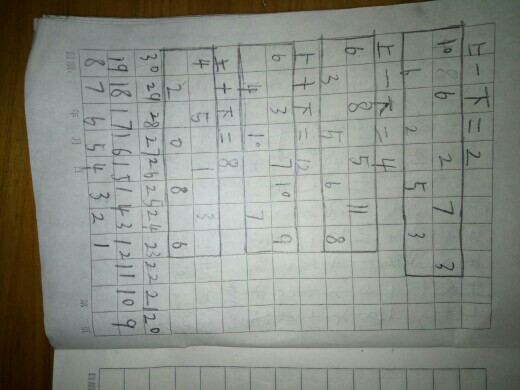 上－下＝2
10 8 6 2 7 3
6 2 5 3
上－下＝4
6 8 5 11
3 5 6 8
上＋下＝12
6 3 7 10 9
4 10 7
上＋下＝8
4 5 1 3
2 0 8 6
30 29 28 27 26 25 24 23 22 21 20
19 18 17 16 15 14 13 12 11 10 9
8 7 6 5 4 3 2 1